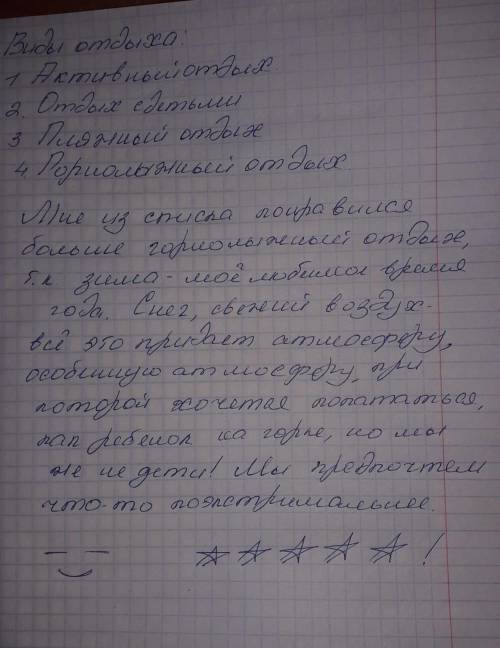 Виды отдыха:
1 Активный отдых
2. Отдых с детьми
3 Пляжный отдых
4. Горнолыжный отдых
Мне из списка понравился
больше горнолыжный отдых,
т.к зима - моё любимое время
года. Снег, свежий воздух -
всё это придает атмосферу,
особенную атмосферу, при
которой хочется покататься,
как ребёнок на горке, но мы
же не дети! Мы предпочтем
что-то поэкстримальнее.